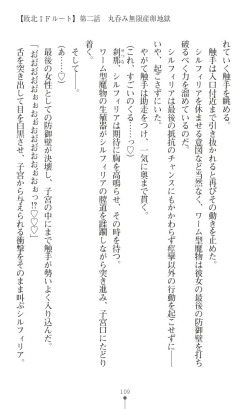 【敗北ⅠFルート】第二話　丸呑み無限産卵地獄
れていく触手を眺める。
触手は入口付近まで引き抜かれると再びその動きを止めた。
シルフィリアを休ませる意図など当然なく、ワーム型魔物は彼女の最後の防御壁を打ち
破るべく力を溜めているのだ。
シルフィリアは最後の抵抗のチャンスにもかかわらず痙攣以外の行動を起こせずに――
いや、起こさずにいた。
やがて触手は助走をつけ、一気に奥まで貫く。
(これ、すごいのくる……っ♡)
刹那、シルフィリアは期待に胸を高鳴らせ、その時を待つ。
ワーム型魔物の生殖器がシルフィリアの膣道を蹂躙しながら突き進み、子宮口にたどり
着く。
(あ……♡)
最後の女性としての防御壁が決壊し、子宮の中にまで触手が勢いよく入り込んだ。
舌を突き出して目を白黒させ、子宮から与えられる衝撃をそのまま叫ぶシルフィリア。
109